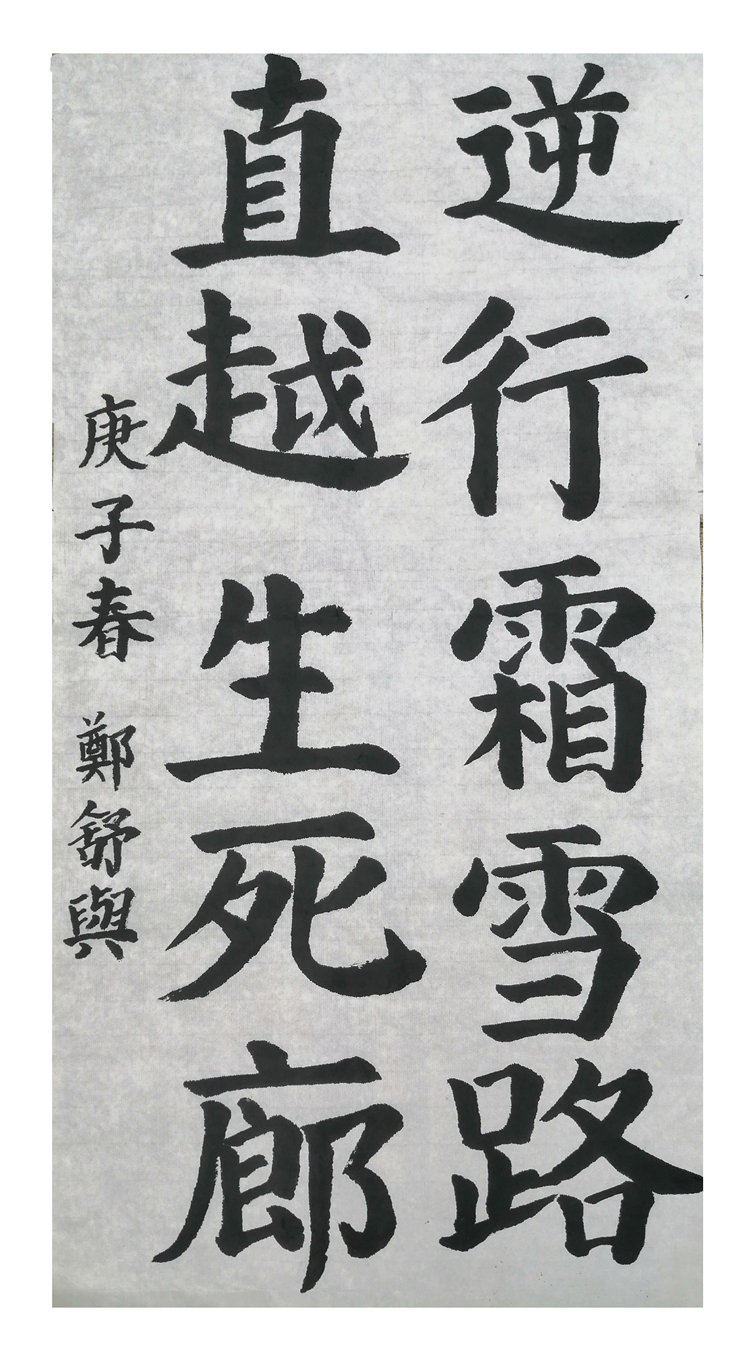 逆行霜雪路
直越生死廊
庚子春 鄭舒與